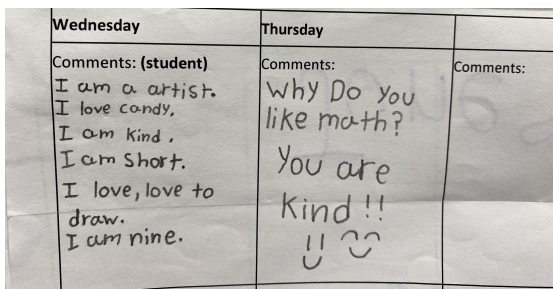 Wednesday
Comments: (student)
I am a artist.
I love candy.
I am kind.
I am short.
I love, love to
draw.
I am nine.
Thursday
Comments:
Why Do You
like math?
You are
kind !!
Comments: